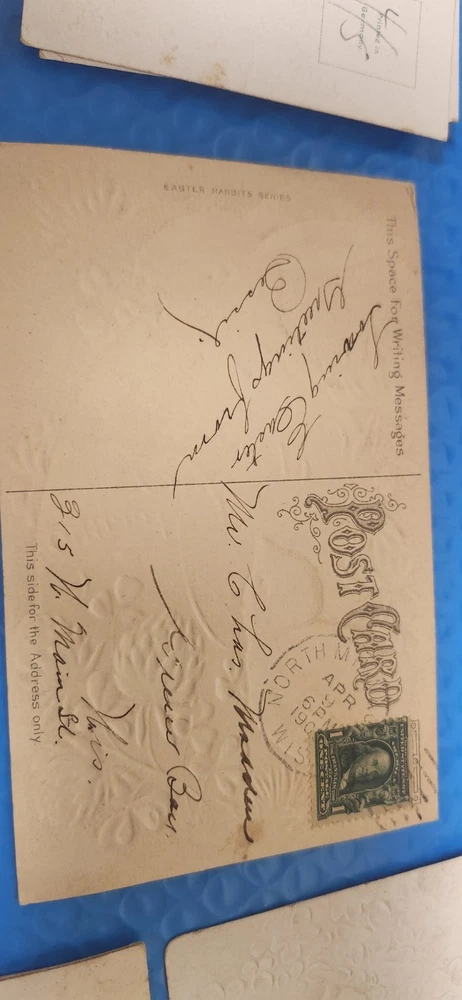 Printed in
Germany.
4/5
EASTER RABBITS SERIES
This Space for Writing Messages
Loving Easter
Greetings from
POST CARD
NORTH M
APR
6 P
190
WIS
Mr. Chas. Madden
Green Bay.
Wis.
315 N. Main St.
This side for the Address only